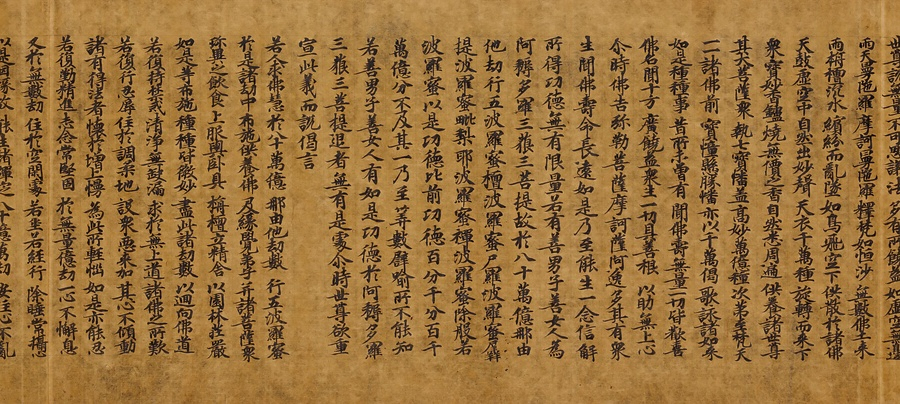 雨天曼陀羅 摩訶曼陀羅 釋梵如恒沙 無數佛土來
雨栴檀沉水 繽紛而亂墜 如鳥飛空下 供散於諸佛
天鼓虛空中 自然出妙聲 天衣千萬種 旋轉而來下
眾寶妙香爐 燒無價之香 自然悉周遍 供養諸世尊
其大菩薩眾 執七寶幡蓋 高妙萬億種 次第至梵天
一一諸佛前 寶幢懸勝幡 亦以千萬偈 歌詠諸如來
如是種種事 昔所未曾有 聞佛壽無量 一切皆歡喜
佛名聞十方 廣饒益眾生 一切具善根 以助無上心
尒時佛告弥勒菩薩摩訶薩阿逸多其有眾
生聞佛壽命長遠如是乃至能生一念信解
所得功德無有限量若有善男子善女人為
阿耨多羅三藐三菩提故於八十萬億那由
他劫行五波羅蜜檀波羅蜜尸羅波羅蜜羼
提波羅蜜毗梨耶波羅蜜禪波羅蜜除般若
波羅蜜以是功德比前功德百分千分百千
萬億分不及其一乃至筭數譬喻所不能知
若善男子善女人有如是功德於阿耨多羅
三藐三菩提退者無有是處尒時世尊欲重
宣此義而說偈言
若人求佛慧 於八十萬億 那由他劫數 行五波羅蜜
於是諸劫中 布施供養佛 及緣覺弟子 并諸菩薩眾
珎異之飲食 上服與臥具 栴檀立精舍 以園林莊嚴
如是等布施 種種皆微妙 盡此諸劫數 以迴向佛道
若復持禁戒 清淨無缺漏 求於無上道 諸佛之所歎
若復行忍辱 住於調柔地 設眾惡來加 其心不傾動
諸有得法者 懷於增上慢 為此所輕惱 如是亦能忍
若復勤精進 志念常堅固 於無量億劫 一心不懈息
又於無數劫 住於空閑處 若坐若經行 除睡常攝心